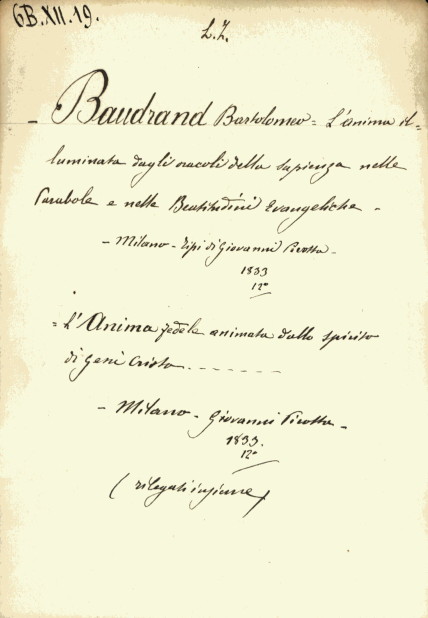 6B.XII.19.
L.Z.
- Baudrand Bartolomeo = L'anima il-
luminata dagli oracoli della sapienza nelle
Parabole e nelle Beatitudini Evangeliche -
- Milano - Tipi di Giovanni Pirotta -
1833
12°
= L'Anima fedele animata dallo spirito
di Gesù Cristo - - - - - - -
- Milano - Giovanni Pirotta -
1833.
12°
(rilegati insieme)